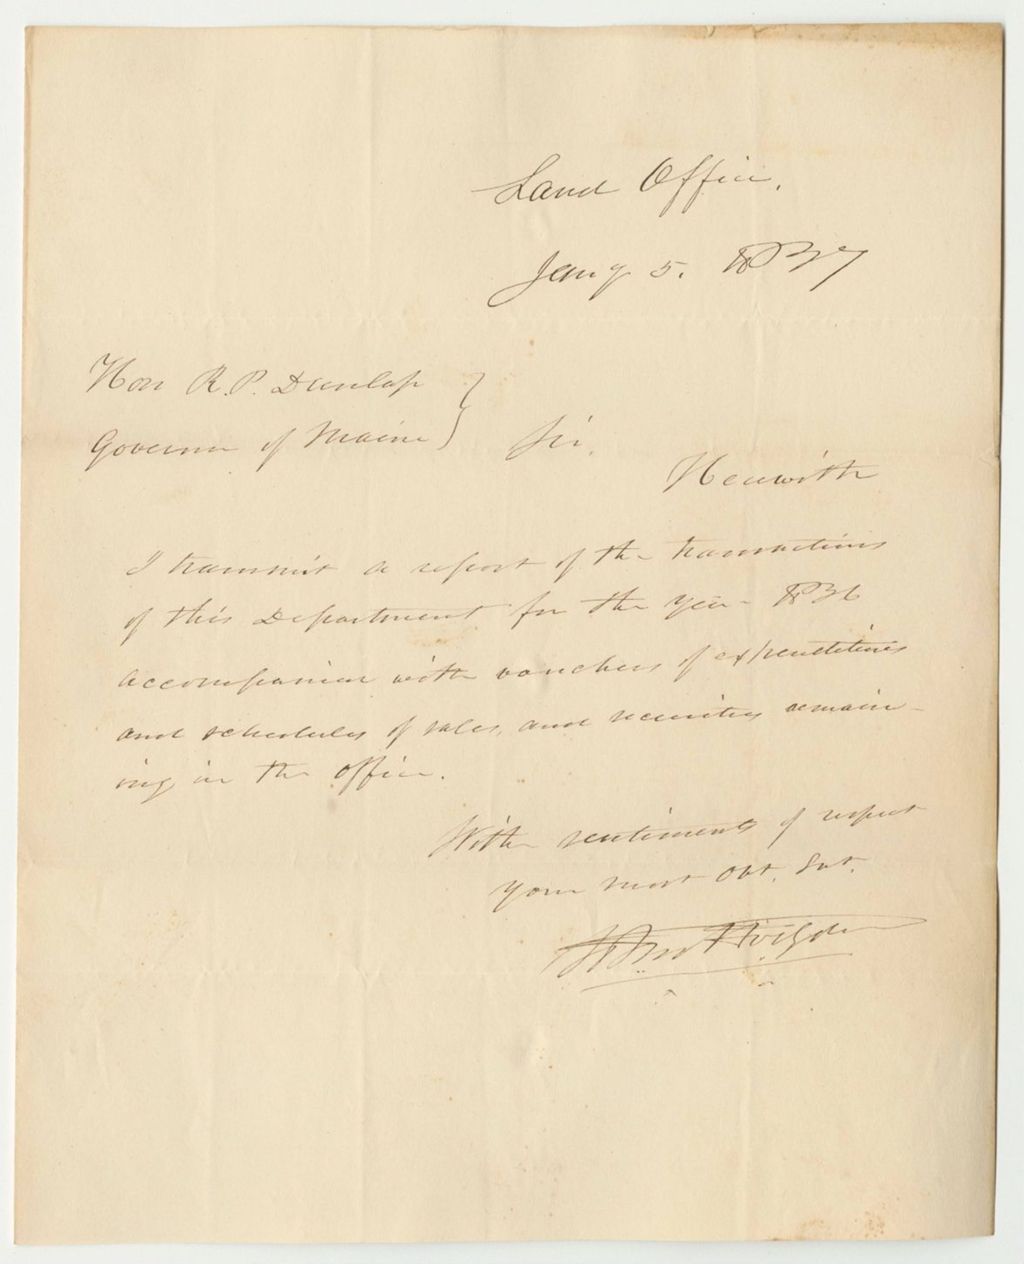 Land Office,
Jany 5. 1837
Hon R. P. Dunlap
Governor of Maine } Sir,
Herewith
I transmit a report of the transactions
of this Department for the year 1836
accompanied with vouchers of expenditures
and schedules of sales, and securities remain-
ing in the office.
With sentiments of respect
your most Obt. Svt.
Jno Hodgdon